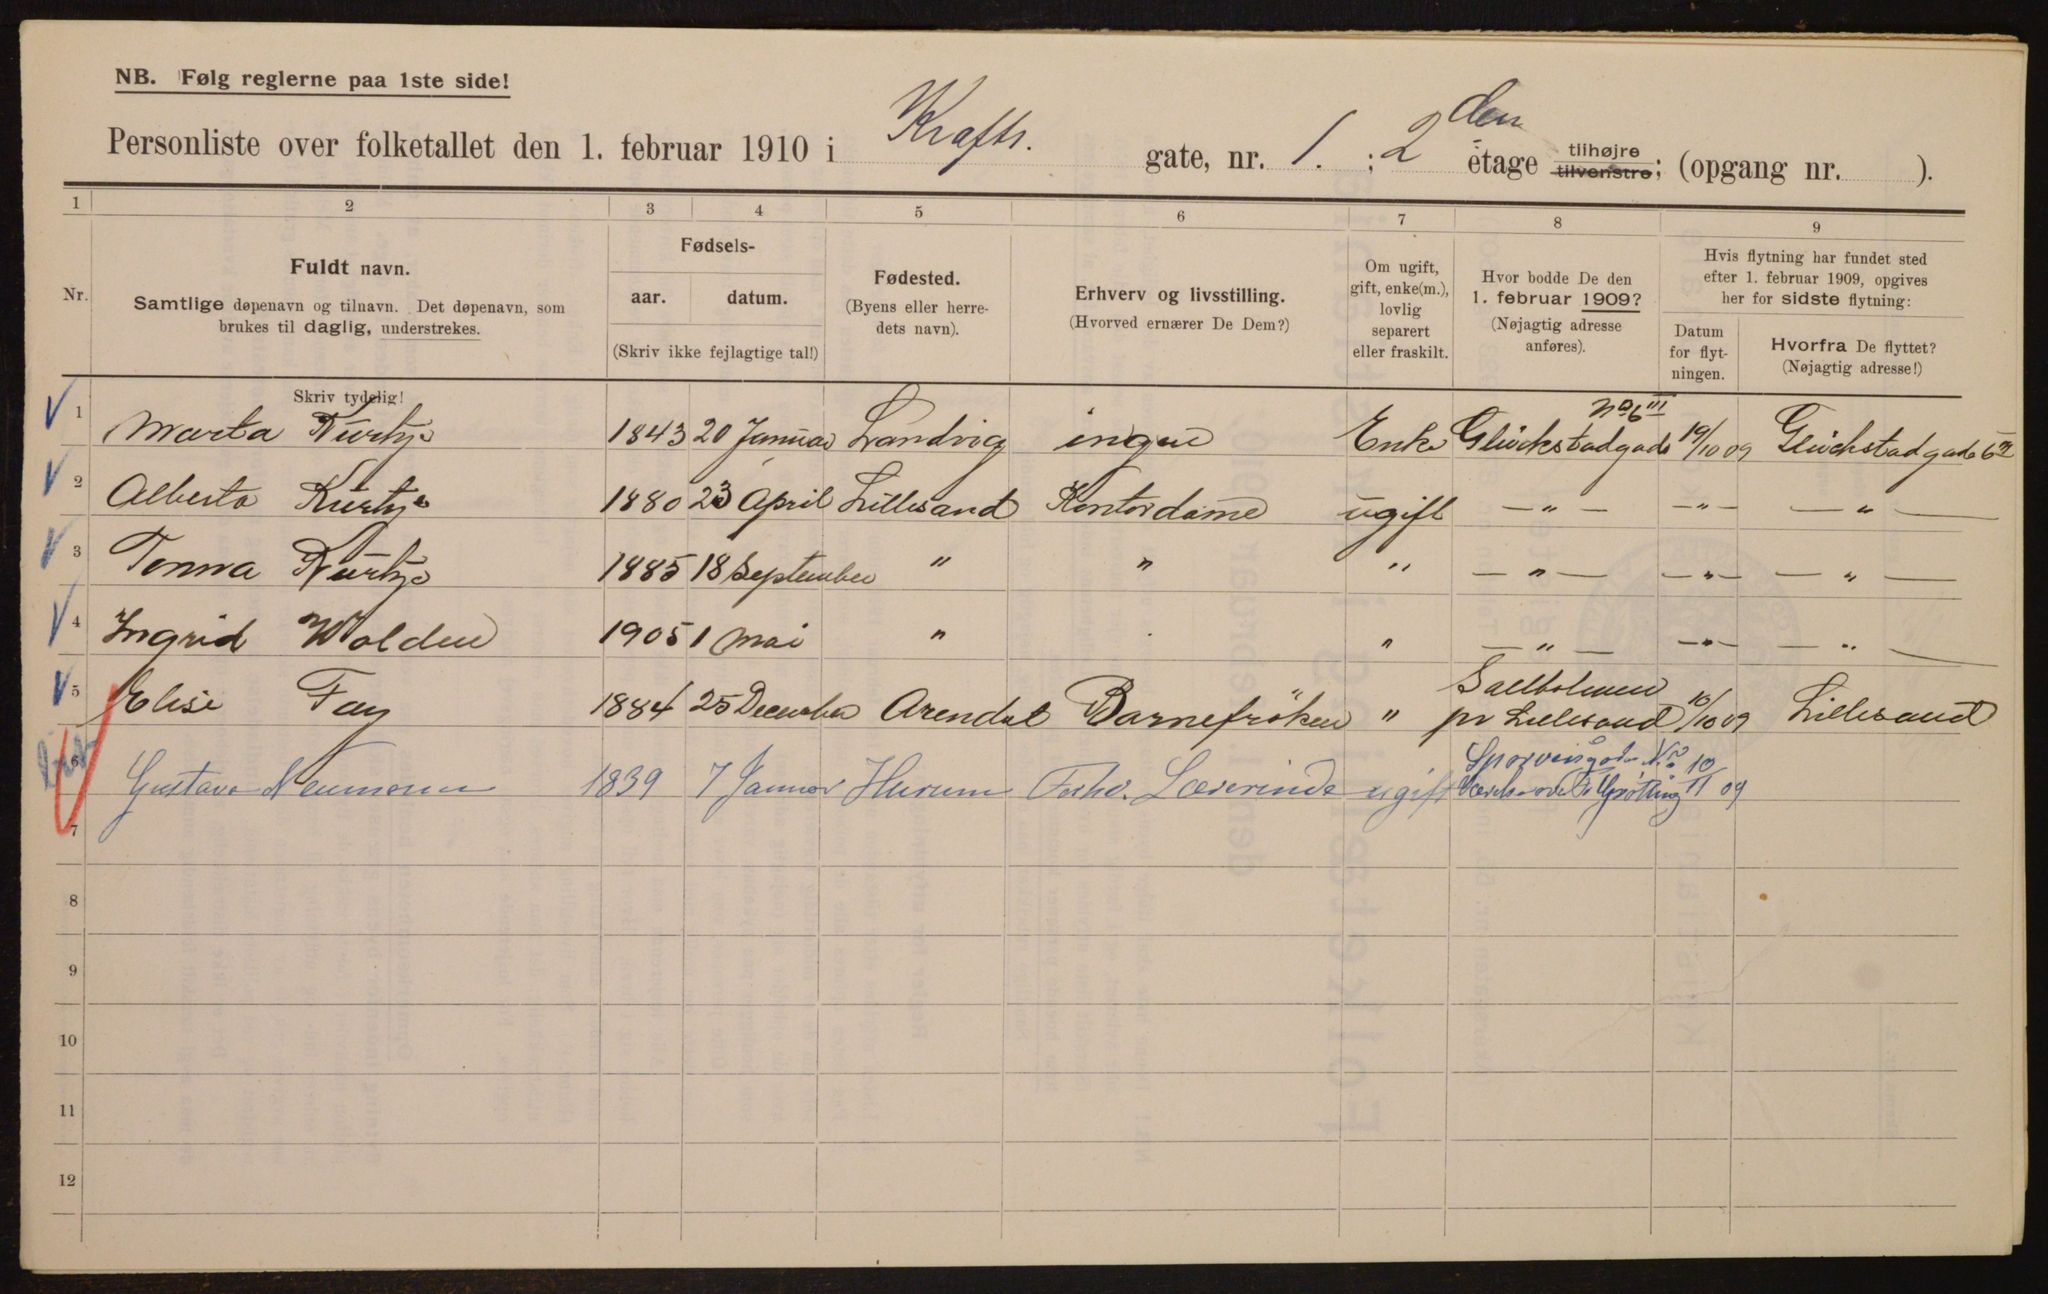 NB. Følg reglerne paa 1ste side!
Personliste over folketallet den 1. februar 1910 i Krafts. gate, nr. 1. ; 2den etage tilhøjre tilvenstre; (opgang nr. ).
1 2 3 4 5 6 7 8 9
Nr.
Fuldt navn.
Samtlige døpenavn og tilnavn. Det døpenavn, som
brukes til daglig, understrekes.
Skriv tydelig!
Fødsels-
aar. datum.
(Skriv ikke fejlagtige tal!)
Fødested.
(Byens eller herre-
dets navn).
Erhverv og livsstilling.
(Hvorved ernærer De Dem?)
Om ugift,
gift, enke(m.),
lovlig
separert
eller fraskilt.
Hvor bodde De den
1. februar 1909?
(Nøjagtig adresse
anføres).
Hvis flytning har fundet sted
efter 1. februar 1909, opgives
her for sidste flytning:
Datum
for flyt-
ningen.
Hvorfra De flyttet?
(Nøjagtig adresse!)
1 Marta 1843 20 Januar Landvig ingen Enke Glückstadgade No 6 III 19/10 09 Glückstadgade 6
2 Alberta 1880 23 April Lillesand Kontordame ugift — " — — " — — " —
3 1885 18 September " " " — " — — " — — " —
4 Ingrid Wolden 1905 1 Mai " " — " — — " — — " —
5 Elise Fay 1884 25 December Arendal Barnefrøken " pr Lillesand 10/10 09 Lillesand
6 Gustava Neumann 1839 7 Januar Hurum Forhv. Lærerinde ugift 10/11 09
7
8
9
10
11
12